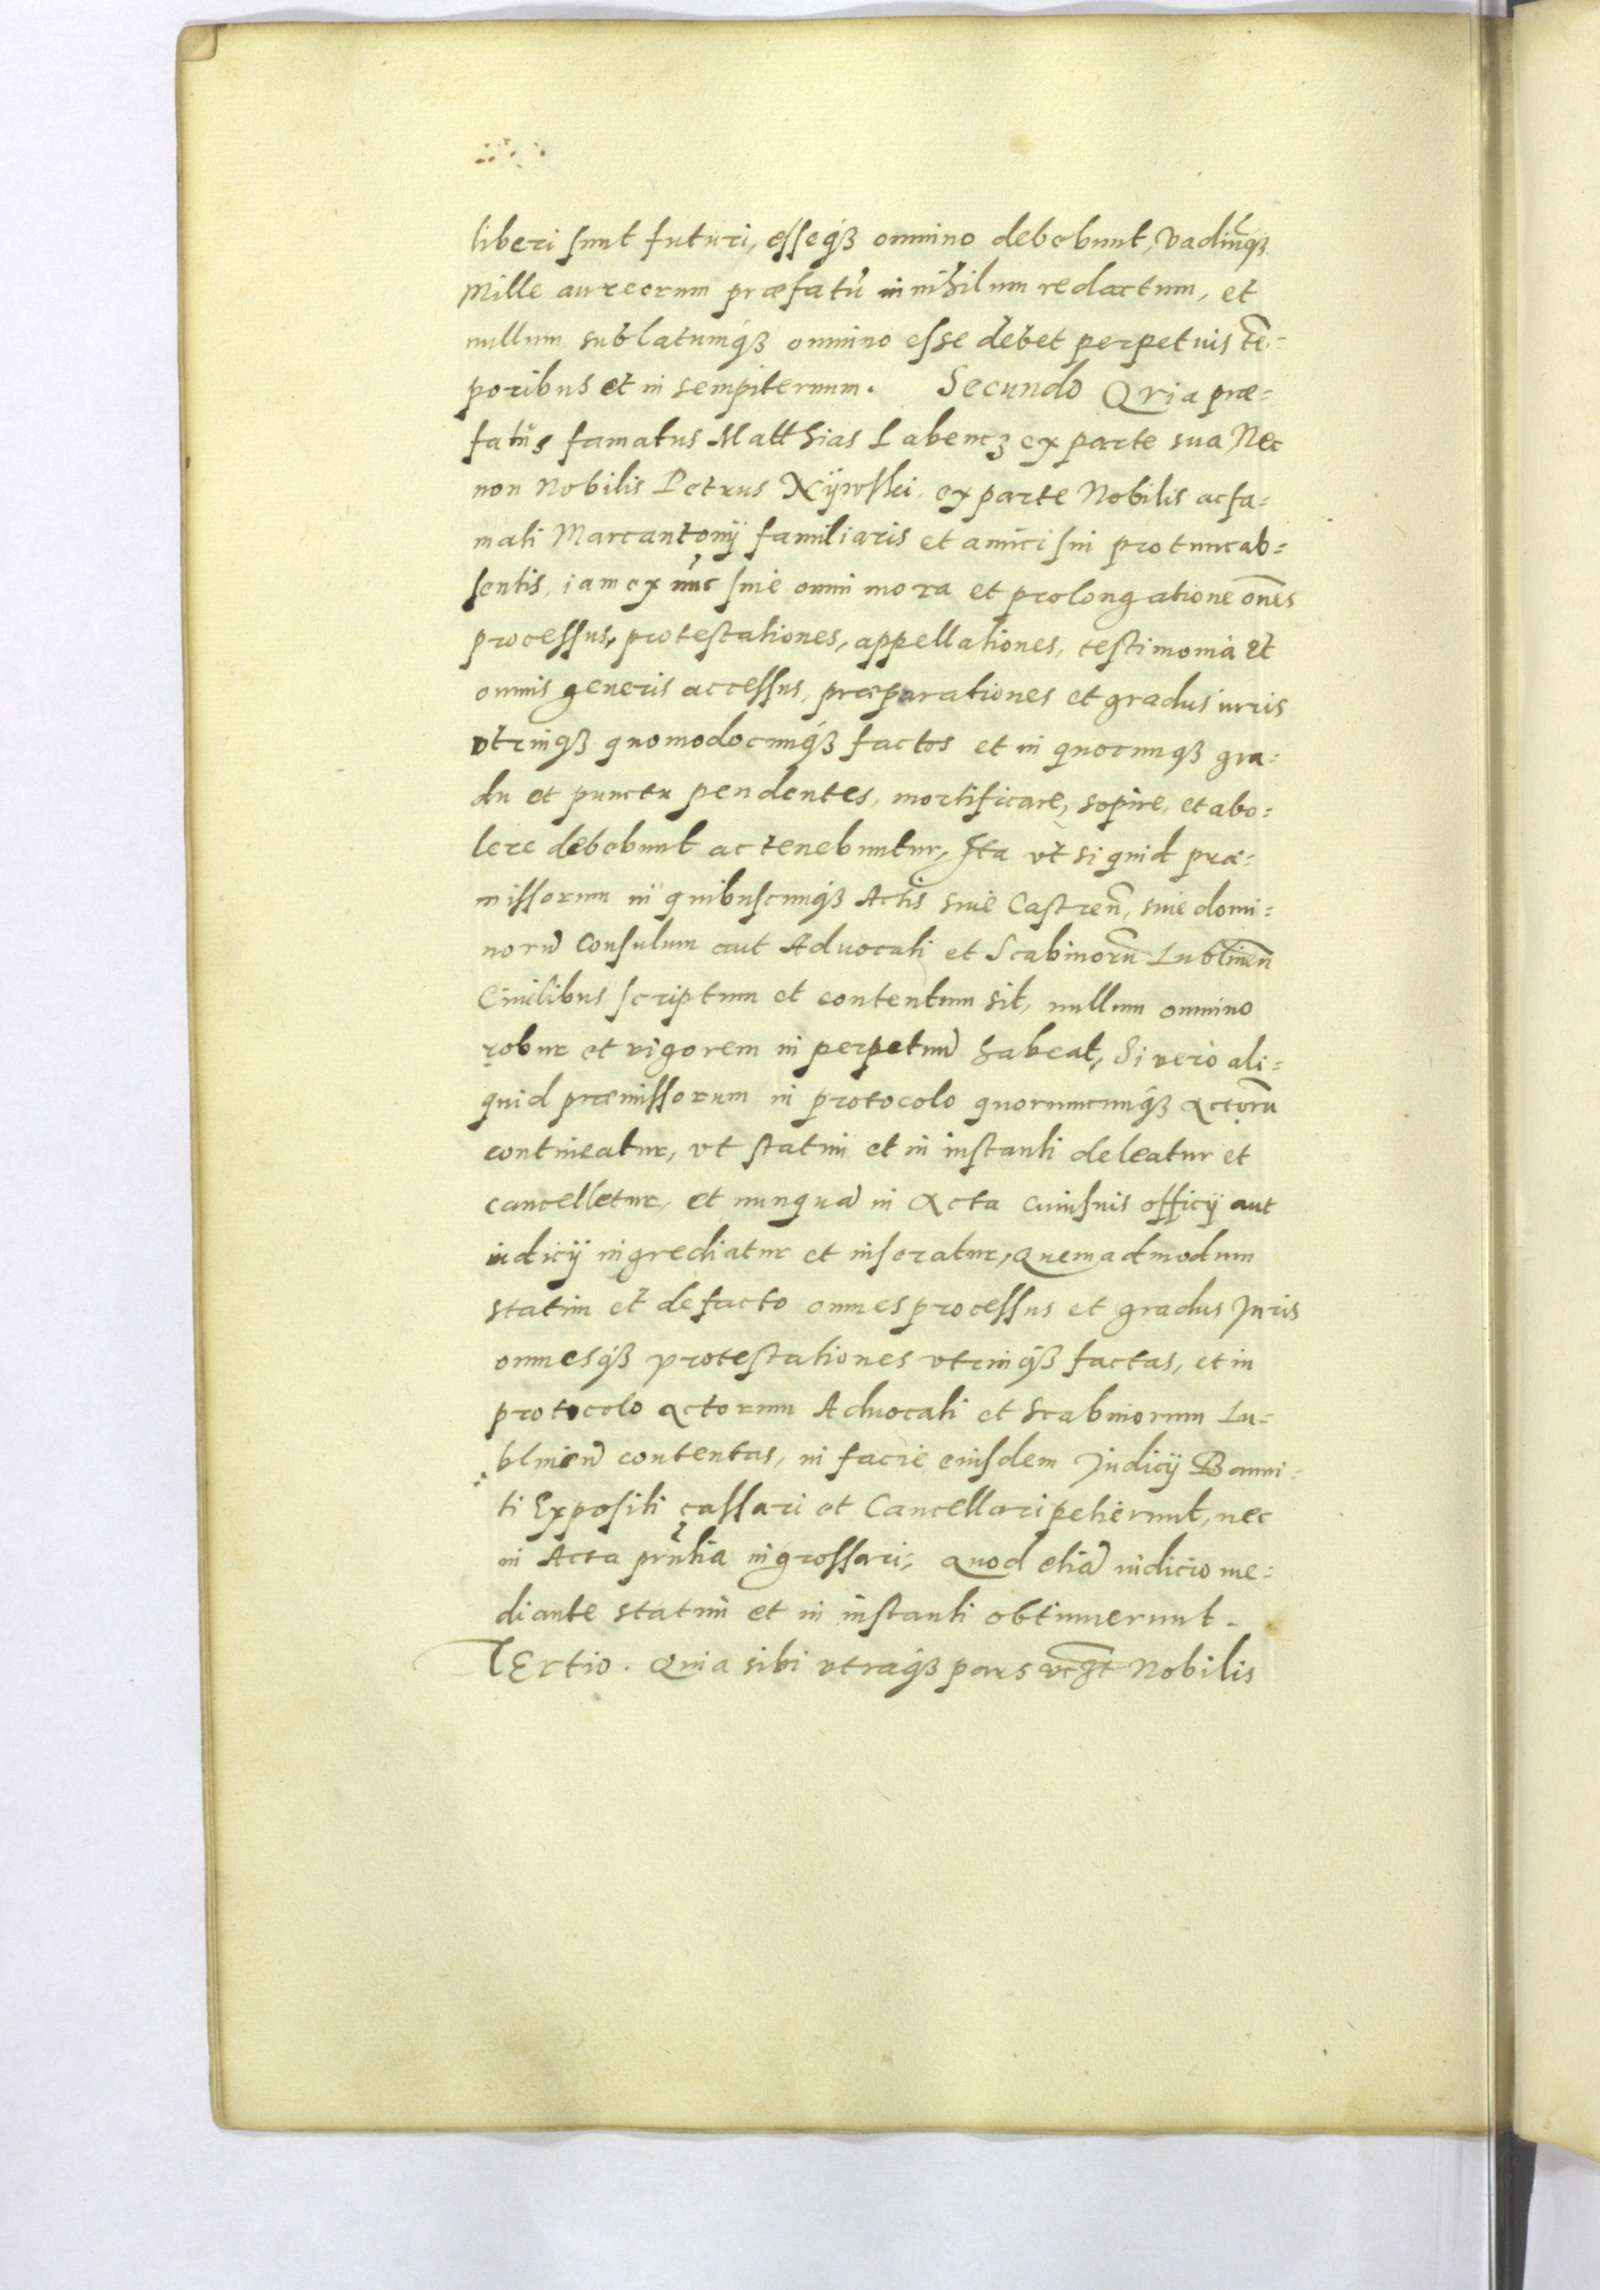 liberi sunt futuri, esseqꝫ omnino debebunt, Vadiũqꝫ
Mille aureorum præfatũ in nihilum redactum, et
nullum sublatumqꝫ omnino esse debet perpetuis tẽ=
poribus et in sempiternum. Secundo Quia præ=
fatus famatus Matthias Labencz ex parte sua Nec
non Nobilis Petrus ex parte Nobilis ac fa=
mati Marcantonij familiaris et amici sui pro tunc ab=
sentis, iam ex nũc sine omni mora et prolongatione oñes
processus, protestationes, appellationes, testimonia et
omnis generis accessus, præparationes et gradus iuris
vtrinqꝫ quomodocunqꝫ factos et in quocunqꝫ gra=
du et punctu pendentes, mortificare, sopire, et abo=
lere debebunt ac tenebuntur, Ita vt si quid præ=
missorum in quibuscunqꝫ Actis siue Castreñ, siue domi=
norũ Consulum aut Aduocati et Scabinorũ Lublineñ
Ciuilibus scriptum et contentum sit, nullum omnino
robur et vigorem in perpetuũ habeat, Si verò ali=
quid præmissorum in protocolo quorumcunqꝫ Actorũ
contineatur, vt statim et in instanti deleatur et
cancelletur, et nunquã in Acta cuiusuis officij aut
iudicij ingrediatur et inseratur, Quemadmodum
statim et de facto omnes processus et gradus Juris
omnesqꝫ protestationes vtrinqꝫ factas, et in
protocolo Actorum Aduocati et Scabinorum Lu=
blineñ contentas, in facie eiusdem Judicij Banni=
ti Expositi cassari et Cancellari petierunt, nec
in Acta pñtia ingrossari, Quod etiã iudicio me=
diante statim et in instanti obtinuerunt.
TErtio. Quia sibi vtraqꝫ pars Nobilis